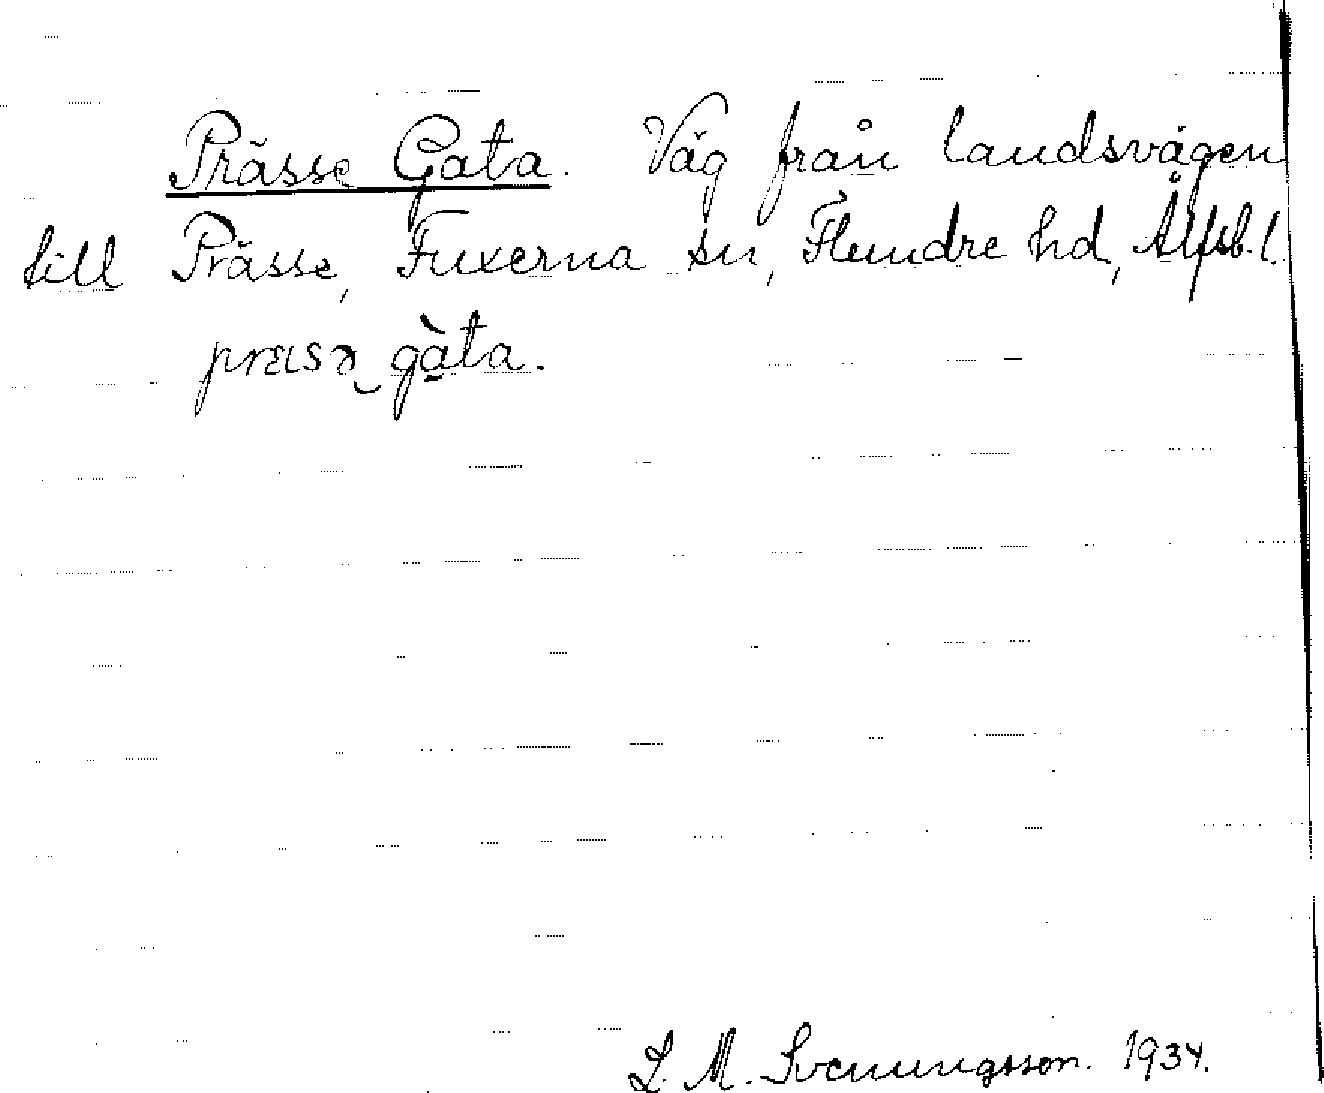 Prässe Gata. Väg från landsvägen
till Prässe, Fuxerna sn, Flundre hd, Älfsb. l.
præısə gàta.
L. M. Svenungsson. 1934.